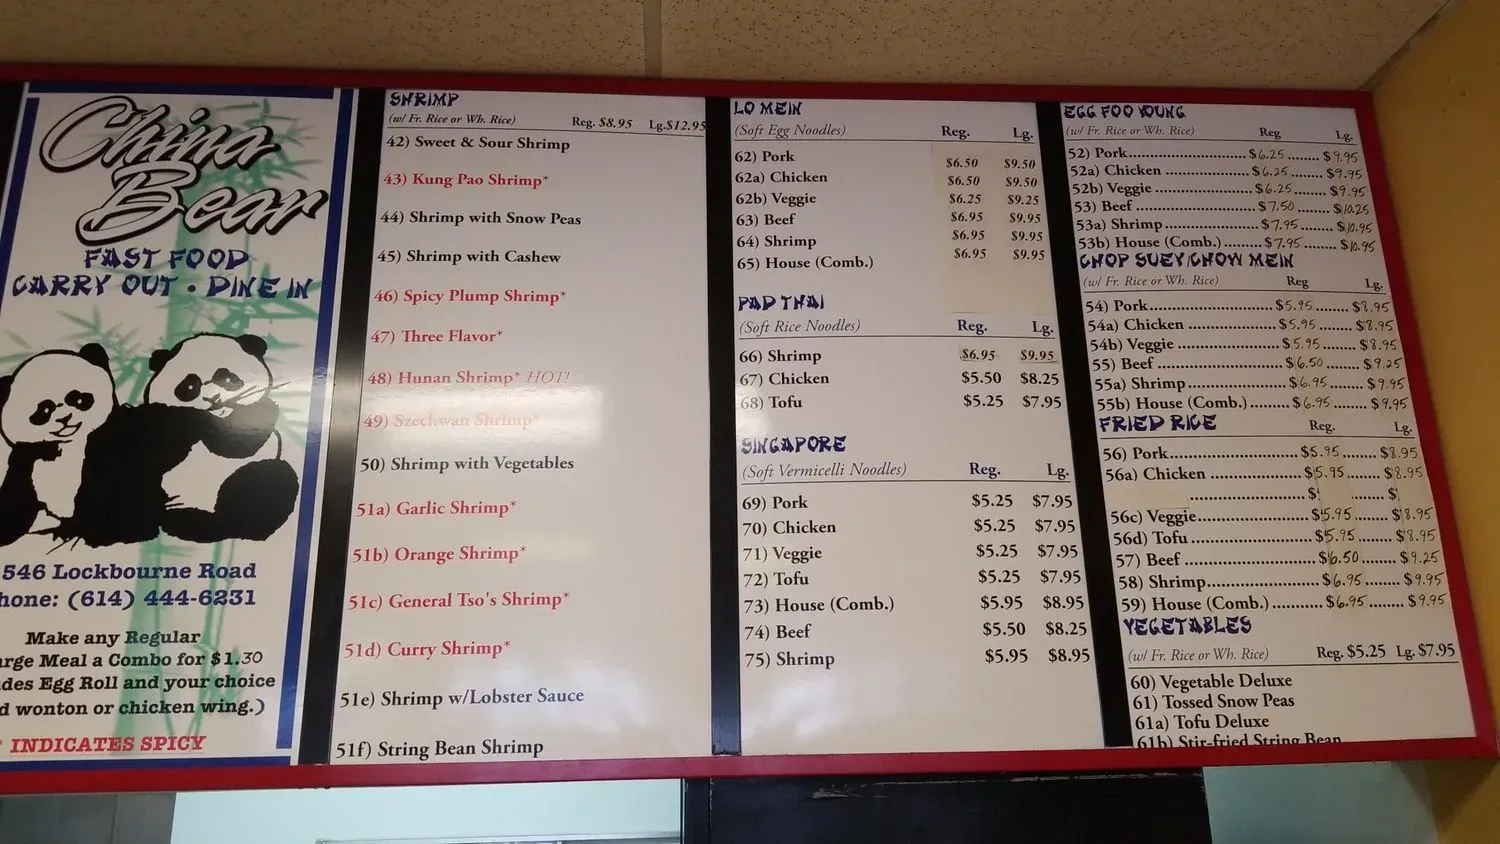 China
Bear
FAST FOOD
CARRY OUT • DINE IN
546 Lockbourne Road
hone: (614) 444-6231
Make any Regular
arge Meal a Combo for $1.30
des Egg Roll and your choice
d wonton or chicken wing.)
* INDICATES SPICY
SHRIMP
(w/ Fr. Rice or Wh. Rice) Reg. $8.95 Lg.$12.95
42) Sweet & Sour Shrimp
43) Kung Pao Shrimp*
44) Shrimp with Snow Peas
45) Shrimp with Cashew
46) Spicy Plump Shrimp*
47) Three Flavor*
48) Hunan Shrimp* HOT!
49) Szechwan Shrimp*
50) Shrimp with Vegetables
51a) Garlic Shrimp*
51b) Orange Shrimp*
51c) General Tso's Shrimp*
51d) Curry Shrimp*
51e) Shrimp w/Lobster Sauce
51f) String Bean Shrimp
LO MEIN
(Soft Egg Noodles) Reg. Lg.
62) Pork $6.50 $9.50
62a) Chicken $6.50 $9.50
62b) Veggie $6.25 $9.25
63) Beef $6.95 $9.95
64) Shrimp $6.95 $9.95
65) House (Comb.) $6.95 $9.95
PAD THAI
(Soft Rice Noodles) Reg. Lg.
66) Shrimp $6.95 $9.95
67) Chicken $5.50 $8.25
68) Tofu $5.25 $7.95
SINGAPORE
(Soft Vermicelli Noodles) Reg. Lg.
69) Pork $5.25 $7.95
70) Chicken $5.25 $7.95
71) Veggie $5.25 $7.95
72) Tofu $5.25 $7.95
73) House (Comb.) $5.95 $8.95
74) Beef $5.50 $8.25
75) Shrimp $5.95 $8.95
EGG FOO YOUNG
(w/ Fr. Rice or Wh. Rice) Reg Lg.
52) Pork........ $6.25 ........ $9.95
52a) Chicken ........ $6.25 ........ $9.95
52b) Veggie ........ $6.25 ........ $9.95
53) Beef ........ $7.50 ........ $10.25
53a) Shrimp ........ $7.95 ........ $10.95
53b) House (Comb.) ........ $7.95 ........ $10.95
CHOP SUEY/CHOW MEIN
(w/ Fr. Rice or Wh. Rice) Reg Lg.
54) Pork........ $5.95 ........ $8.95
54a) Chicken ........ $5.95 ........ $8.95
54b) Veggie ........ $5.95 ........ $8.95
55) Beef ........ $6.50 ........ $9.25
55a) Shrimp ........ $6.95 ........ $9.95
55b) House (Comb.) ........ $6.95 ........ $9.95
FRIED RICE Reg. Lg.
56) Pork........ $5.95 ........ $8.95
56a) Chicken ........ $5.95 ........ $8.95
........ $ ........ $
56c) Veggie ........ $5.95 ........ $8.95
56d) Tofu ........ $5.95 ........ $8.95
57) Beef ........ $6.50 ........ $9.25
58) Shrimp ........ $6.95 ........ $9.95
59) House (Comb.) ........ $6.95 ........ $9.95
VEGETABLES
(w/ Fr. Rice or Wh. Rice) Reg. $5.25 Lg. $7.95
60) Vegetable Deluxe
61) Tossed Snow Peas
61a) Tofu Deluxe
61b) Stir-fried String Bean